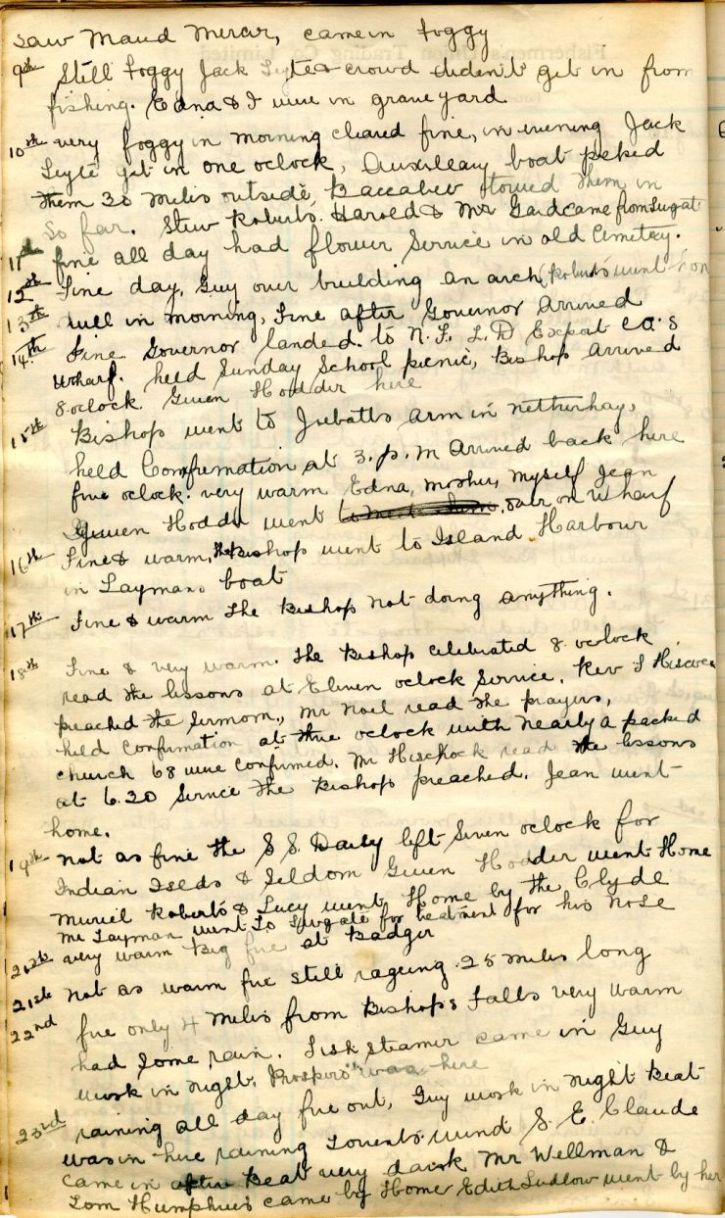 saw Maud Mercer, came in foggy
9th Still foggy Jack Leyte & crowd diden't get in from
fishing. Edna & I were in graveyard
10th very foggy in morning cleared fine, in evening Jack
Leyte got in one oclock, Auxileary boat peked
them 30 miles outside, Baccalieu towed them in
So far. Stew Roberts. Harold & Mr Gard came from Twigate
11th fine all day had flower Service in old Cemetey.
12th Fine day. Guy over building an arch, Roberts went from
13th till in morning, Fine after Governor arrived
14th Fine Governor landed to N. F. L. D Export Co.s
wharf. held Sunday School picnic, Bishop arrived
8 oclock Gwen Hodder here
15th Bishop went to in Netherhay,
held Comfirmation at 3. p. m Arrived back here
five oclock. very warm Edna, mother, myself Jean
Gwen Hodder went over on wharf
16th Fine & warm, the Bishop went to Island Harbour
in Laymans boat
17th Fine & warm The Bishop not doing anything.
18th Fine & very warm. The Bishop celebrated 8 oclock
read the lessons at Eleven oclock Service. Rev Hiscock
preached the Sermorn, Mr Noel read the prayers,
held Confirmation at three oclock with nearly a packed
church 68 were Confirmed. Mr Hiscock read the lessons
at 6.30 Service the Bishop preached. Jean went
home.
19th Not as fine the S S. Daisy left Seven oclock for
Indian Islds & Seldom Gwen Hodder went Home
Muriel Roberts & Lucy went Home by the Clyde
Mr Layman went to Twigate for treatment for his nose
20th very warm Big fire at Badger
21st Not as warm fire still rageing 25 miles long
22nd fire only 4 miles from Bishops Falls very warm
had some rain. Fisk steamer came in Guy
work in night. Prospero was here
23rd raining all day fire out, Guy work in night Beat
was in here raining torrents wind S. E. Claude
came in after Beat very dark Mr Wellman &
Tom Humphries came by Home Edith Ludlow went by her